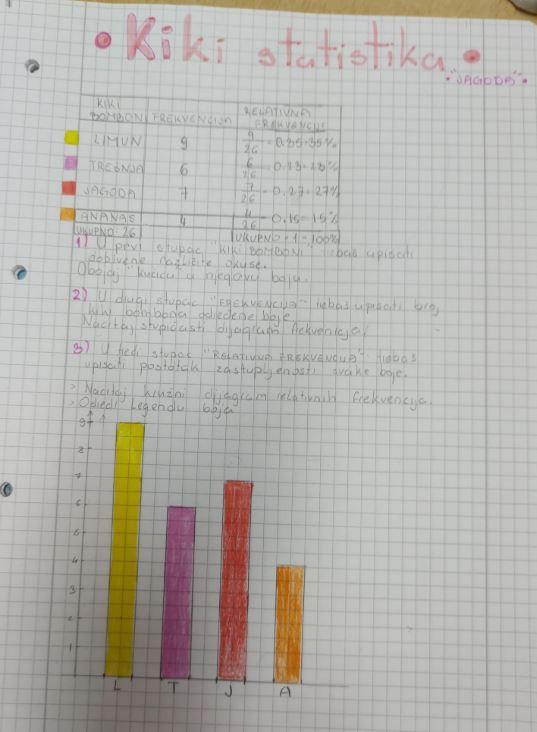 • Kiki statistika •
• "JAGODA" •
KIKI BOMBONI FREKVENCIJA RELATIVNA FREKVENCIJE
LIMUN 9 9/26 = 0.35 = 35%
TREŠNJA 6 6/26 = 0.23 = 23%
JAGODA 7 7/26 = 0.27 = 27%
ANANAS 4 4/26 = 0.15 = 15%
UKUPNO: 26 UKUPNO = 1 = 100%
1) U prvi stupac "KIKI BOMBONI" trebaš upisati
dobivene različite okuse.
Obojaj kućicu u njegovu boju.
2) U drugi stupac "FREKVENCIJA" trebaš upisati broj
kiki bombona određene boje.
Nacrtaj stupičasti dijagram frekvencija.
3) U treći stupac "RELATIVNA FREKVENCIJA" trebaš
upisati postotak zastupljenosti svake boje.
> Nacrtaj kružni dijagram relativnih frekvencija.
> Odredi legendu boja
9
8
7
6
5
4
3
2
1
L T J A